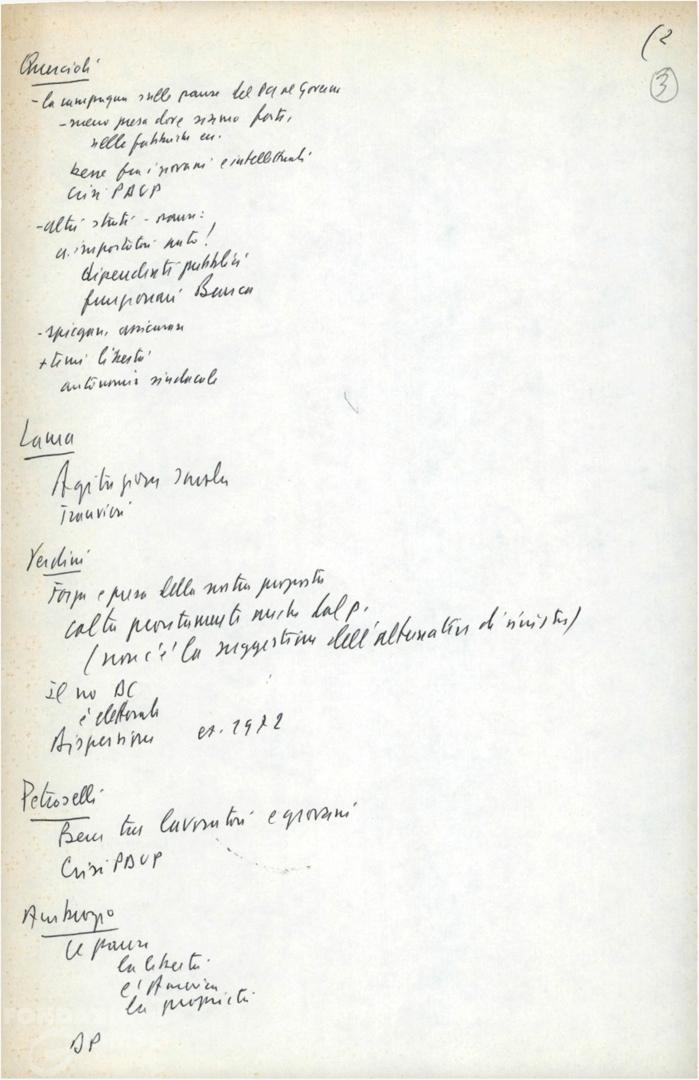 (2
3
Quercioli
- la campagna sulle paure del PCI al Governo
- meno presa dove siamo forti,
nelle fabbriche ecc.
bene fra i giovani e intellettuali
Crisi PDUP
- altri strati - paure:
dipendenti pubblici
funzionari Banca
- spiegare, assicurare
+ temi libertà
autonomia sindacale
Lama
Agitazioni scuola
Tranvieri
Verdini
Forza e presa della nostra proposta
colta prontamente anche dal p.
(non c'è la suggestione dell'alternativa di sinistra)
Il no DC
è elettorale
Dispersione es. 1972
Petroselli
Bene tra lavoratori e giovani
Crisi PDUP
Ambrogio
Le paure
la libertà
e l'America
la proprietà
DP